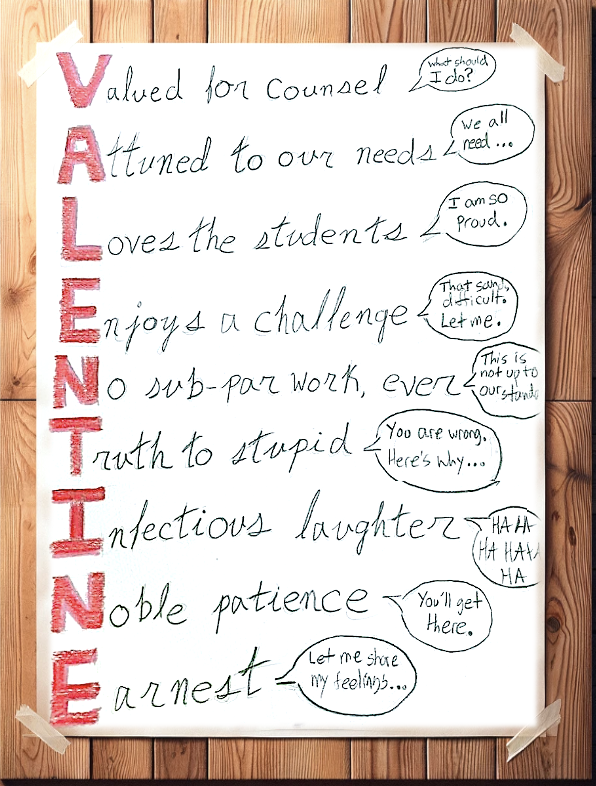 Valued for Counsel
What should
I do?
Attuned to our needs
We all
need ...
Loves the students
I am so
Proud.
Enjoys a challenge
That
difficult.
Let me.
No sub-par work, ever
This is
not up to
our standa
Truth to stupid
You are wrong.
Here's why...
Infectious laughter
HA HA
HA HAHA
HA
Noble patience
You'll get
there.
Earnest
Let me share
my feelings...